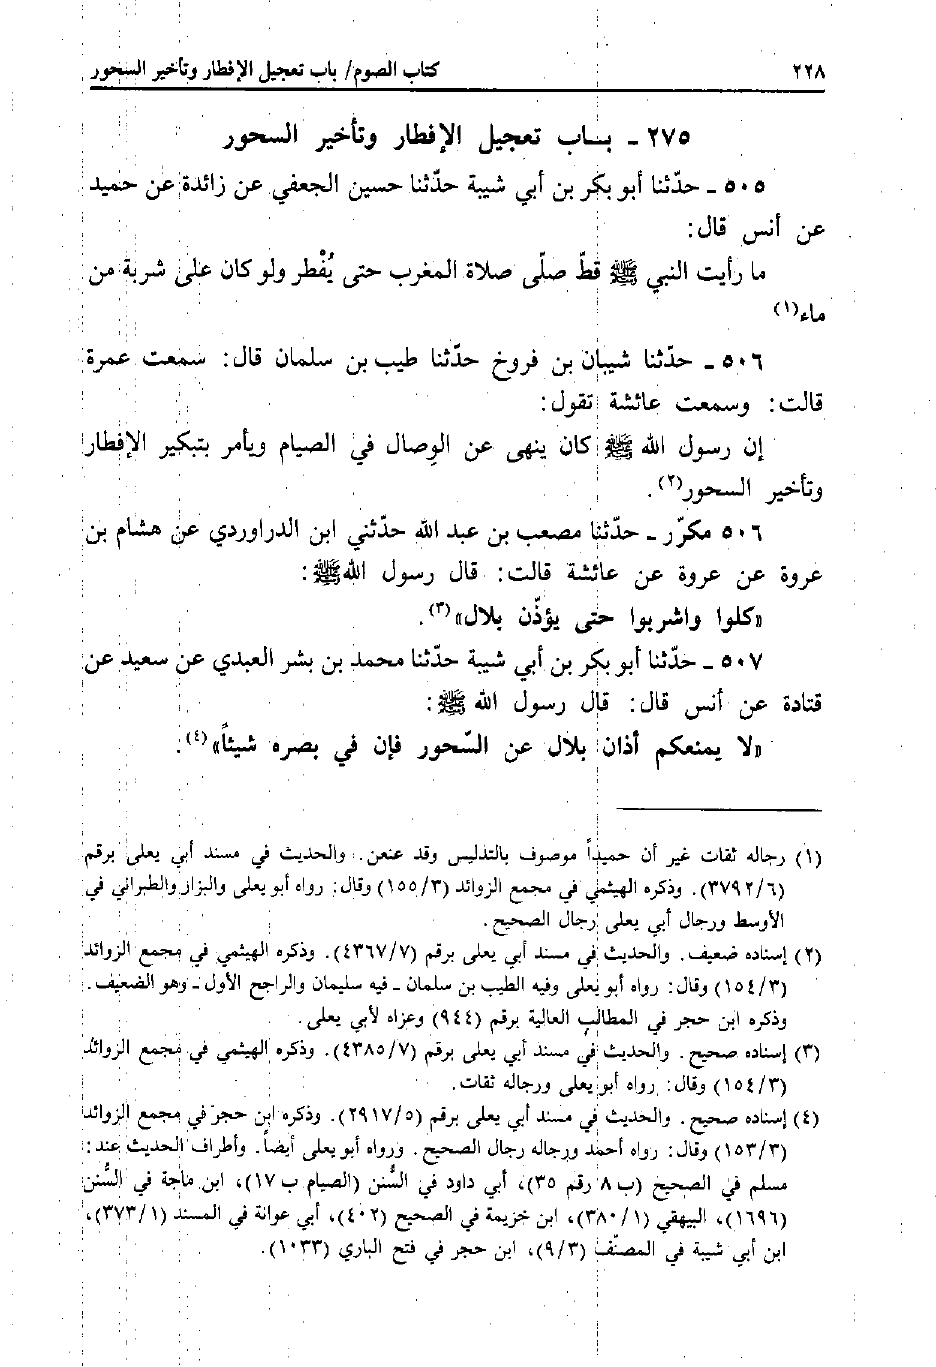 ٢٢٨ كتاب الصوم/ باب تعجيل الإفطار وتأخير السحور
٢٧٥ ـ بـاب تعجيل الإفطار وتأخير السحور
٥٠٥ ـ حدّثنا أبو بكر بن أبي شيبة حدّثنا حسين الجعفي عن زائدة عن حميد
عن أنس قال:
ما رأيت النبي ﷺ قطّ صلّى صلاة المغرب حتى يُفْطر ولو كان على شربة من
ماء(١)
٥٠٦ ـ حدّثنا شيبان بن فروخ حدّثنا طيب بن سلمان قال: سمعت عمرة
قالت: وسمعت عائشة تقول:
إن رسول الله ﷺ كان ينهى عن الوِصال في الصيام ويأمر بتبكير الإفطار
وتأخير السحور(٢).
٥٠٦ مكرّر ـ حدّثنا مصعب بن عبد الله حدّثني ابن الدراوردي عن هشام بن
عروة عن عروة عن عائشة قالت: قال رسول الله ﷺ:
«كلوا واشربوا حتى يؤذّن بلال»(٣).
٥٠٧ ـ حدّثنا أبو بكر بن أبي شيبة حدّثنا محمد بن بشر العبدي عن سعيد عن
قتادة عن أنس قال: قال رسول الله ﷺ:
«لا يمنعكم أذان بلال عن السّحور فإن في بصره شيئاً»(٤).
(١) رجاله ثقات غير أن حميداً موصوف بالتدليس وقد عنعن. والحديث في مسند أبي يعلى برقم
(٣٧٩٢/٦). وذكره الهيثمي في مجمع الزوائد (١٥٥/٣) وقال: رواه أبو يعلى والبزار والطبراني في
الأوسط ورجال أبي يعلى رجال الصحيح.
(٢) إسناده ضعيف. والحديث في مسند أبي يعلى برقم (٤٣٦٧/٧). وذكره الهيثمي في مجمع الزوائد
(١٥٤/٣) وقال: رواه أبو يعلى وفيه الطيب بن سلمان ـ فيه سليمان والراجح الأول ـ وهو الضعيف.
وذكره ابن حجر في المطالب العالية برقم (٩٤٤) وعزاه لأبي يعلى.
(٣) إسناده صحيح. والحديث في مسند أبي يعلى برقم (٤٣٨٥/٧). وذكره الهيثمي في مجمع الزوائد
(١٥٤/٣) وقال: رواه أبو يعلى ورجاله ثقات.
(٤) إسناده صحيح. والحديث في مسند أبي يعلى برقم (٢٩١٧/٥). وذكره ابن حجر في مجمع الزوائد
(١٥٣/٣) وقال: رواه أحمد ورجاله رجال الصحيح. ورواه أبو يعلى أيضاً. وأطراف الحديث عند:
مسلم في الصحيح (ب ٨ رقم ٣٥)، أبي داود في السُّنن (الصيام ب ١٧)، ابن ماجة في السُّنن
(١٦٩٦)، البيهقي (٣٨٠/١)، ابن خزيمة في الصحيح (٤٠٢)، أبي عوانة في المسند (٣٧٣/١)،
ابن أبي شيبة في المصنّف (٩/٣)، ابن حجر في فتح الباري (١٠٣٣).